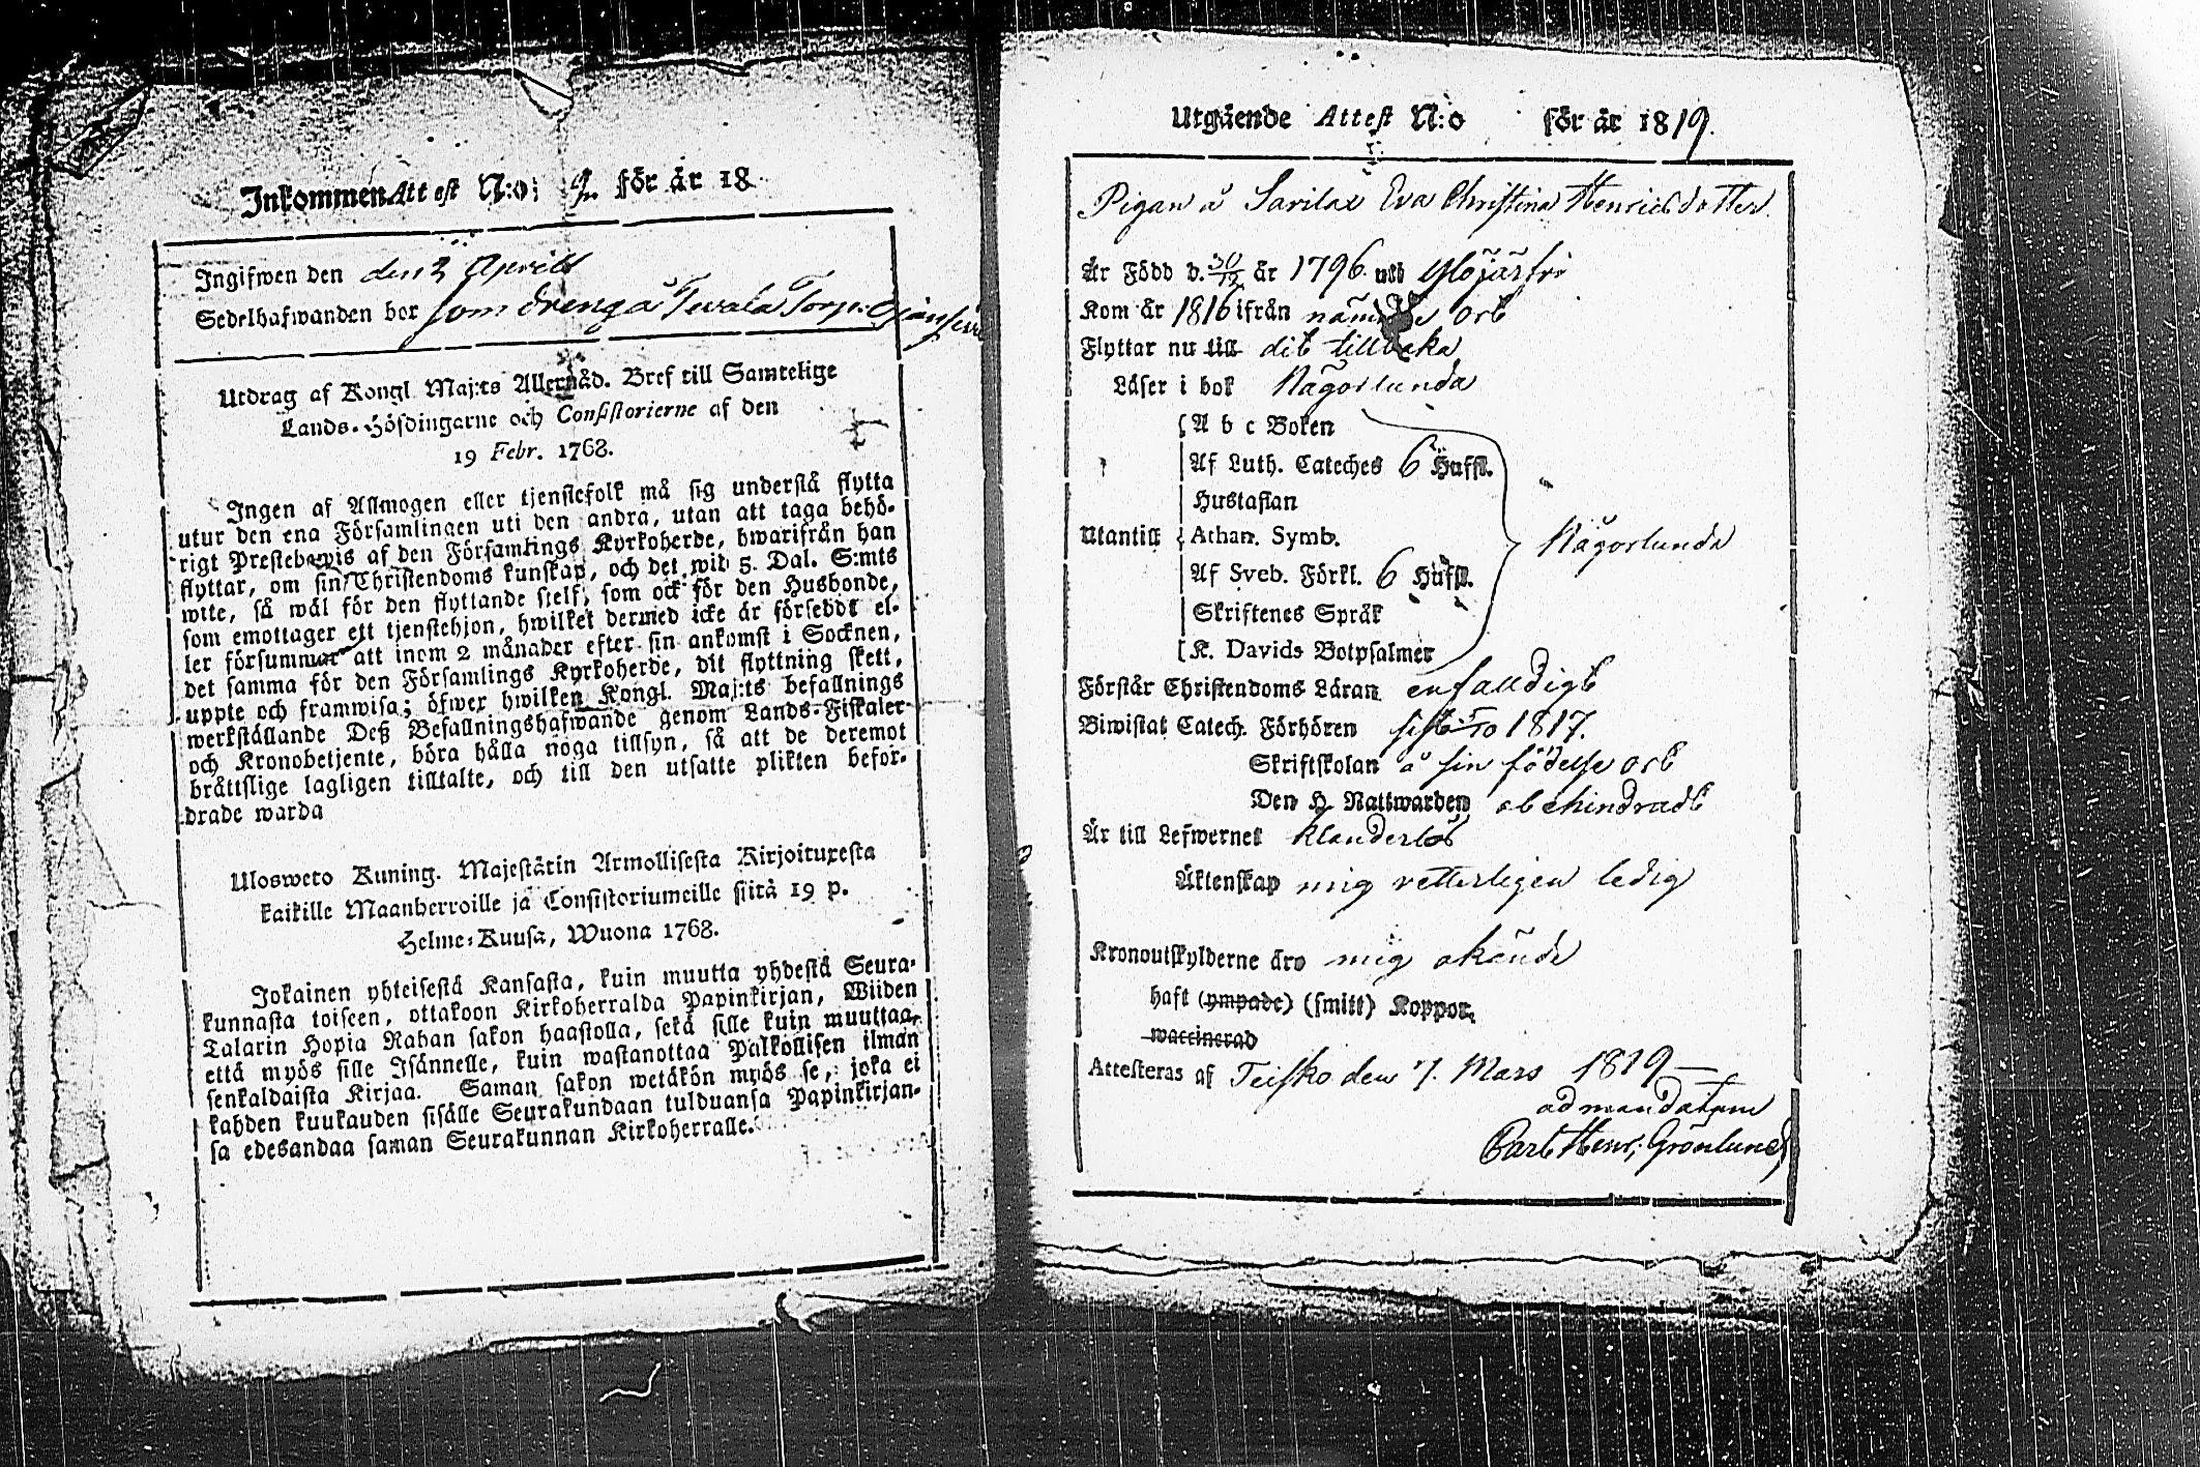 InkommenAttest N:o; 2. för år 18
Ingifwen den den 2 Aprill
Sedelhafwanden bor som dreng å Twala Torp.
Utdrag af Kongl. Maj:ts Allernåd. Bref till Samtelige
Lands-Höfdingarne och Consistorierne af den
19 Febr. 1768.
Ingen af Allmogen eller tjenstefolk må sig understå flytta
utur den ena Församlingen uti den andra, utan att taga behö-
rigt Prestebewis af den Församlings Kyrkoherde, hwarifrån han
flyttar, om sin Christendoms kunskap, och det wid 5. Dal. S:mts
wite, så wäl för den flyttande sielf, som ock för den Husbonde,
som emottager ett tjenstehjon, hwilket dermed icke är förseddt el-
ler försummar att inom 2 månader efter sin ankomst i Socknen,
det samma för den Församlings Kyrkoherde, dit flyttning skett,
uppte och framwisa; öfwer hwilken Kongl. Maj:ts befallnings
werkställande Deß Befallningshafwande genom Lands-Fiskaler
och Kronobetjente, böra hålla noga tillsyn, så att de deremot
bråttslige lagligen tilltalte, och till den utsatte plikten befor-
drade warda
Ulosweto Kuning. Majestätin Armollisesta Kirjoituxesta
kaikille Maanherroille ja Consistoriumeille siitä 19 p.
Helme-Kuusa, Wuona 1768.
Jokainen yhteisestä Kansasta, kuin muutta yhdestä Seura-
kunnasta toiseen, ottakoon Kirkoherralda Papinkirjan, Wiiden
Talarin Hopia Rahan sakon haastolla, sekä sille kuin muuttaa,
että myös sille Isännelle, kuin wastanottaa Palkollisen ilman
senkaldaista Kirjaa. Saman sakon wetäkön myös se, joka ei
kahden kuukauden sisälle Seurakundaan tulduansa Papinkirjan-
sa edesandaa saman Seurakunnan Kirkoherralle.
Utgående Attest N:o för år 1819.
Pigan å Savilax Eva Christina Henricsdotter.
Är Född d. 30/12 år 1796. uti Ylöjärfvi
Kom år 1816 ifrån nämnde ort
Flyttar nu till dit tillbaka
Läser i bok Någorlunda
A b c Boken
Af Luth. Cateches 6 Hufst.
Hustaflan
Utantill Athan. Symb. Någorlunda
Af Sveb. Förkl. 6 Hufst.
Skriftenes Språk
K. Davids Botpsalmer
Förstår Christendoms Läran enfaldigt
Biwistat Catech. Förhören sist 5/10 1817.
Skriftskolan å sin födelse ort
Den H. Nattwarden obehindradt
Är till Lefwernet klanderlös
Äktenskap mig vetterligen ledig
Kronoutskylderne äro mig okände
haft (ympade) (smitt) Koppor.
waccinerad
Attesteras af Teisko den 7. Mars 1819
ad mandatum
Carl Henr; Grönlund